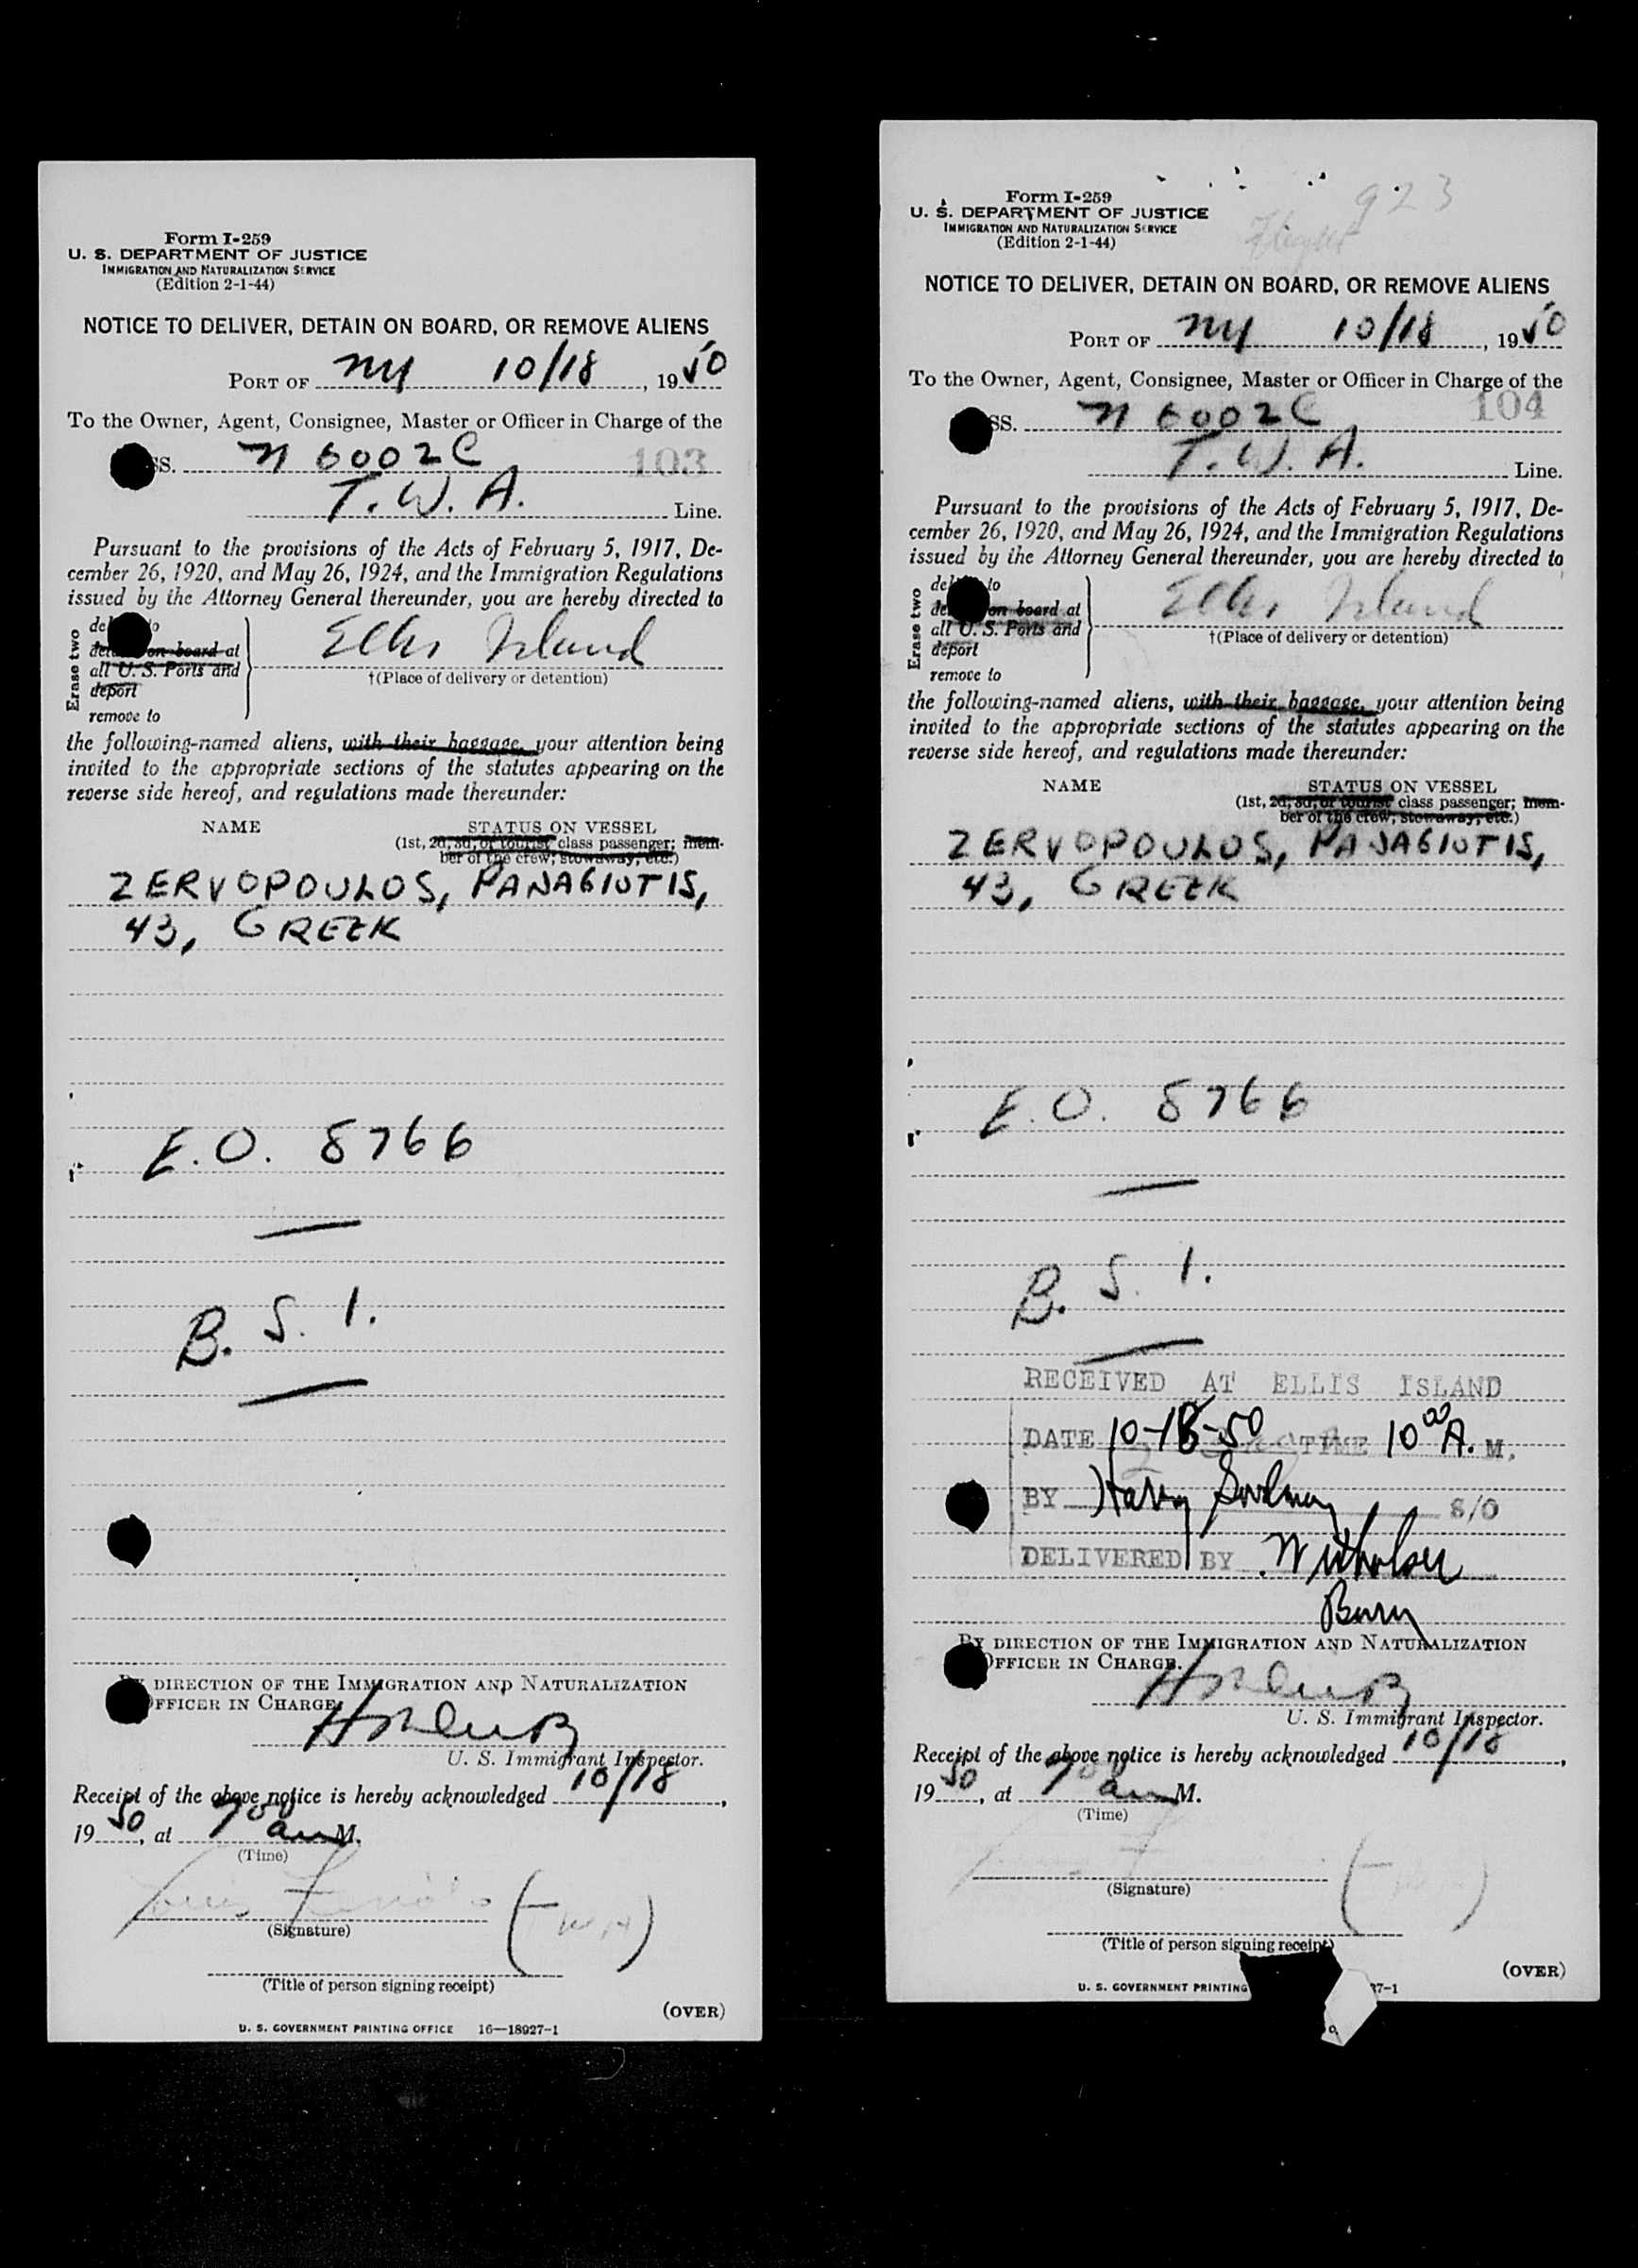 Form I-259
U. S. DEPARTMENT OF JUSTICE
IMMIGRATION AND NATURALIZATION SERVICE
(Edition 2-1-44)
NOTICE TO DELIVER, DETAIN ON BOARD, OR REMOVE ALIENS
PORT OF NY 10/18, 1950
To the Owner, Agent, Consignee, Master or Officer in Charge of the
SS. N 6002C
103
T. W. A. Line.
Pursuant to the provisions of the Acts of February 5, 1917, De-
cember 26, 1920, and May 26, 1924, and the Immigration Regulations
issued by the Attorney General thereunder, you are hereby directed to
Erase two
on board at
all U. S. Ports and
deport
remove to
Ellis Island
†(Place of delivery or detention)
the following-named aliens, with their baggage, your attention being
invited to the appropriate sections of the statutes appearing on the
reverse side hereof, and regulations made thereunder:
NAME STATUS ON VESSEL
(1st, 2d, 3d, or tourist class passenger; mem-
ber of the crew; stowaway, etc.)
ZERVOPOULOS, PANAGIOTIS,
43, GREEK
E.O. 8766
B. S. I.
DIRECTION OF THE IMMIGRATION AND NATURALIZATION
OFFICER IN CHARGE.
U. S. Immigrant Inspector.
Receipt of the above notice is hereby acknowledged 10/18,
1950, at 7 00 am M.
(Time)
(Signature)
(Title of person signing receipt)
(OVER)
U. S. GOVERNMENT PRINTING OFFICE 16—18927-1
923
Flight
Form I-259
U. S. DEPARTMENT OF JUSTICE
IMMIGRATION AND NATURALIZATION SERVICE
(Edition 2-1-44)
NOTICE TO DELIVER, DETAIN ON BOARD, OR REMOVE ALIENS
PORT OF NY 10/18, 1950
To the Owner, Agent, Consignee, Master or Officer in Charge of the
104
SS. N 6002C
T. W. A. Line.
Pursuant to the provisions of the Acts of February 5, 1917, De-
cember 26, 1920, and May 26, 1924, and the Immigration Regulations
issued by the Attorney General thereunder, you are hereby directed to
Erase two
to
on board at
all U. S. Ports and
deport
remove to
Ellis Island
†(Place of delivery or detention)
the following-named aliens, with their baggage, your attention being
invited to the appropriate sections of the statutes appearing on the
reverse side hereof, and regulations made thereunder:
NAME STATUS ON VESSEL
(1st, 2d, 3d, or tourist class passenger; mem-
ber of the crew; stowaway, etc.)
ZERVOPOULOS, PANAGIOTIS,
43, GREEK
E.O. 8766
B. S. I.
RECEIVED AT ELLIS ISLAND
DATE 10-18-50 TIME 10 00 A. M.
BY Harry S/O
DELIVERED BY
BY DIRECTION OF THE IMMIGRATION AND NATURALIZATION
OFFICER IN CHARGE.
U. S. Immigrant Inspector.
Receipt of the above notice is hereby acknowledged 10/18,
1950, at 7 00 am M.
(Time)
(Signature)
(Title of person signing receipt)
(OVER)
U. S. GOVERNMENT PRINTING 27-1